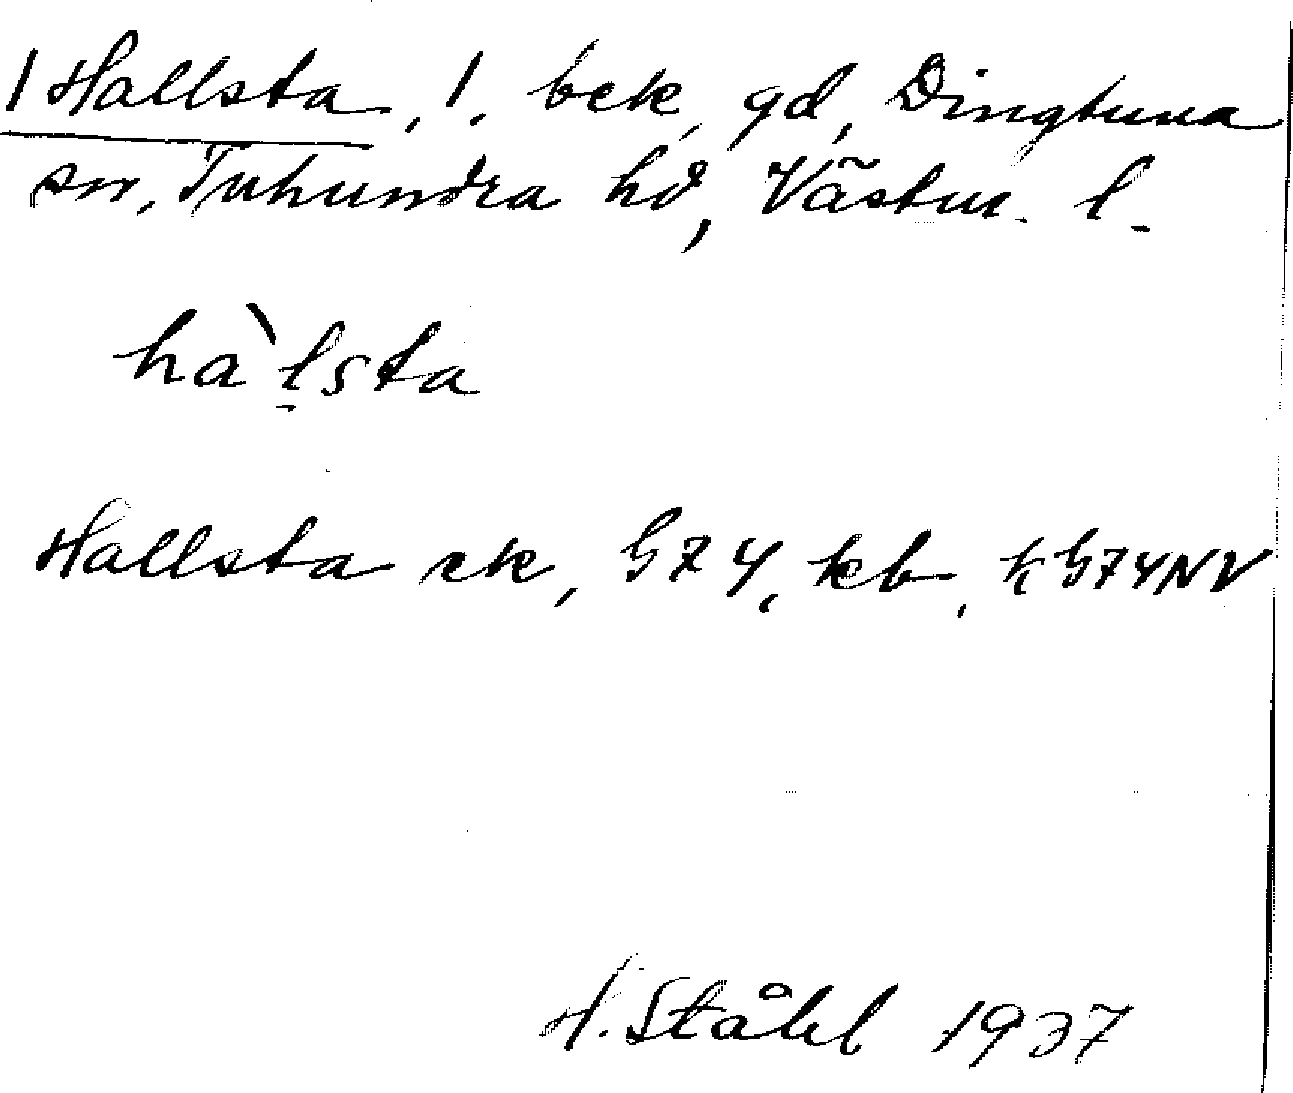 1 Hallsta, 1. bek, gd, Dingtuna
sn, Tuhundra hd, Västm. l.
hàḷsta
Hallsta ek, G74, kb, kG74NV
H. Ståhl 1937